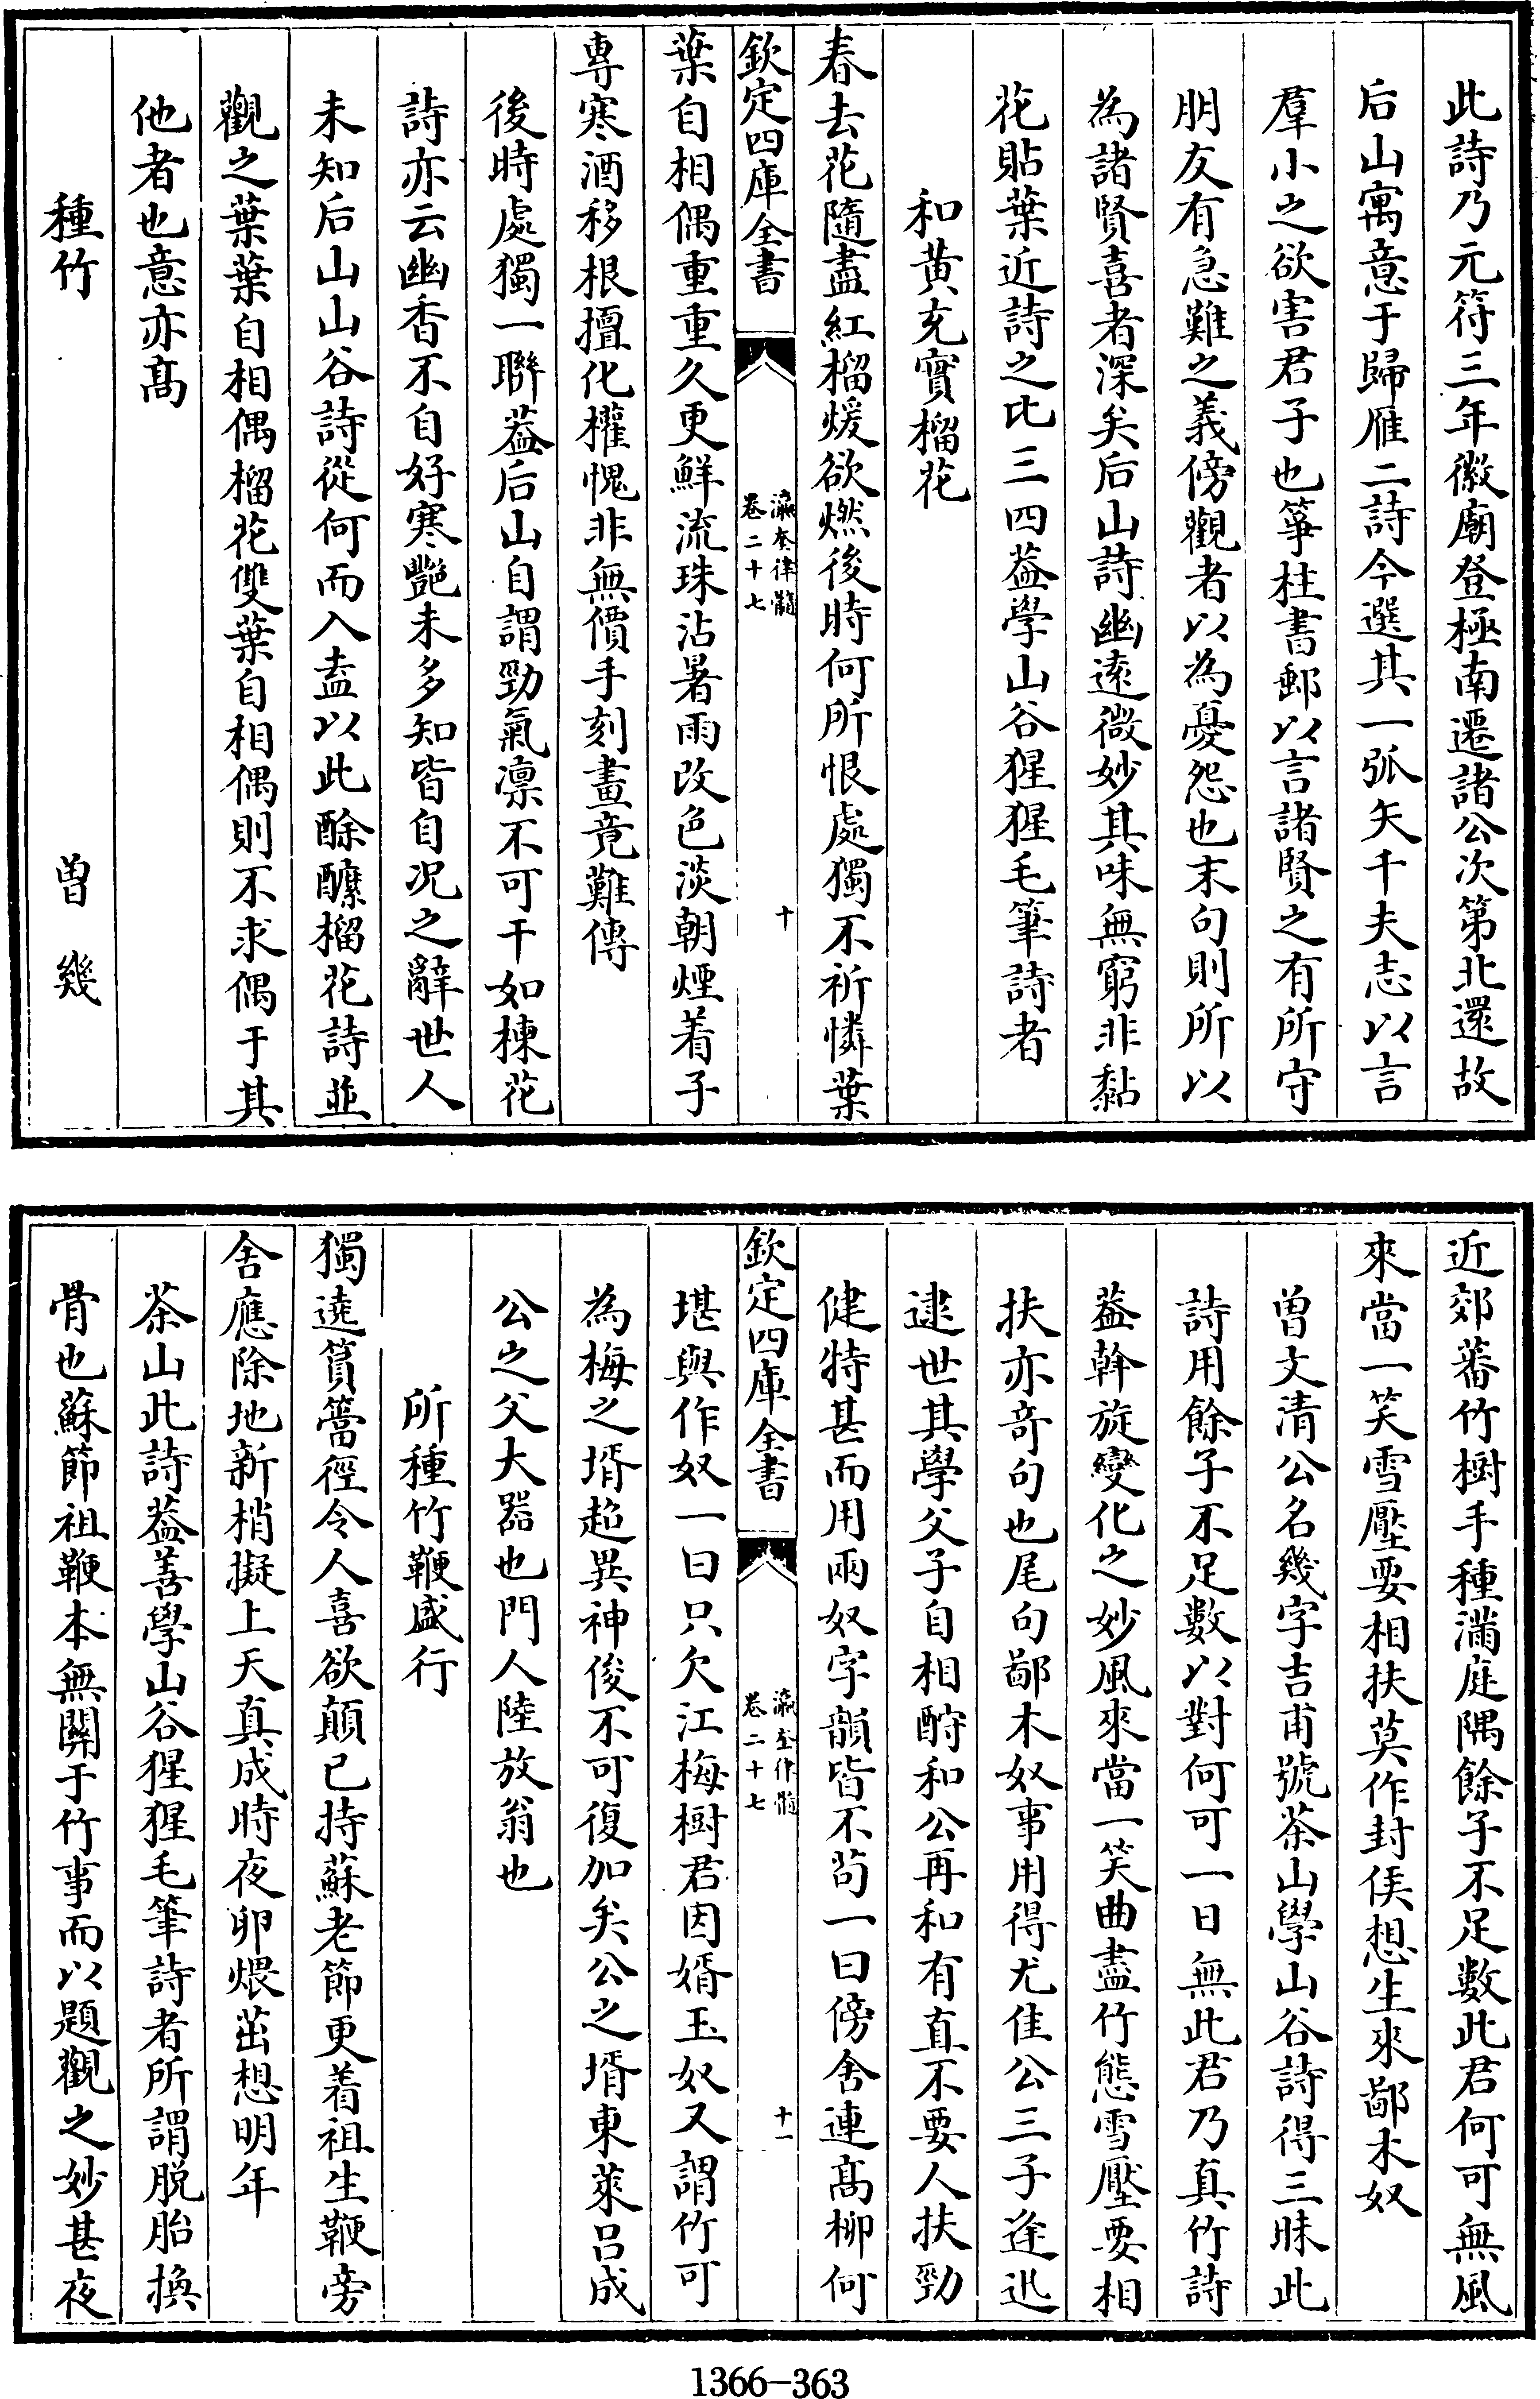 此詩乃元符三年徽廟登極南遷諸公次第北還故
后山寓意于歸雁二詩今選其一弧矢千夫志以言
羣小之欲害君子也箏柱書郵以言諸賢之有所守
朋友有急難之義傍觀者以為憂怨也末句則所以
為諸賢喜者深矣后山詩幽遠微妙其味無窮非黏
花貼葉近詩之比三四葢學山谷猩猩毛筆詩者
和黄充實榴花
春去花隨盡紅榴煖欲燃後時何所恨處獨不祈憐葉
欽定四庫全書
瀛奎律髓
卷二十七
十
葉自相偶重重久更鮮流珠沾暑雨改色淡朝煙着子
專寒酒移根擅化權愧非無價手刻畫竟難傳
後時處獨一聯葢后山自謂勁氣凛不可干如楝花
詩亦云幽香不自好寒艷未多知皆自况之辭世人
未知后山山谷詩從何而入盍以此酴醾榴花詩並
觀之葉葉自相偶榴花雙葉自相偶則不求偶于其
他者也意亦髙
種竹
曽幾
近郊蕃竹樹手種滿庭隅餘子不足數此君何可無風
來當一笑雪壓要相扶莫作封侯想生來鄙木奴
曽文清公名幾字吉甫號茶山學山谷詩得三昧此
詩用餘子不足數以對何可一日無此君乃真竹詩
葢幹旋變化之妙風來當一笑曲盡竹態雪壓要相
扶亦奇句也尾句鄙木奴事用得尤佳公三子逢迅
逮世其學父子自相酧和公再和有直不要人扶勁
健特甚而用兩奴字韻皆不茍一曰傍舍連髙柳何
欽定四庫全書
瀛奎律髓
卷二十七
十一
堪與作奴一曰只欠江梅樹君因婿玉奴又謂竹可
為梅之壻超異神俊不可復加矣公之壻東萊吕成
公之父大器也門人陸放翁也
所種竹鞭盛行
獨遶篔簹徑令人喜欲顛已持蘇老節更着祖生鞭旁
舍應除地新梢擬上天真成時夜卵煨茁想明年
茶山此詩葢善學山谷猩猩毛筆詩者所謂脱胎換
骨也蘇節祖鞭本無闗于竹事而以題觀之妙甚夜
1366-363